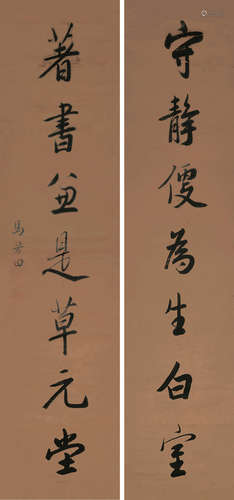 守靜便為生白室
著書全是草元堂
馬芳田